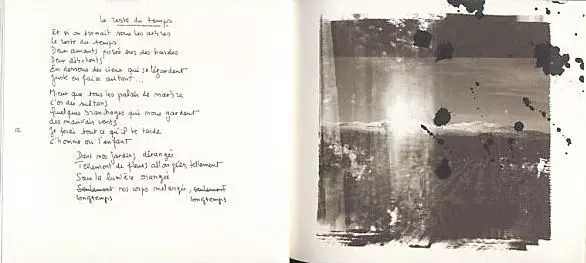 Le reste du temps
Et si on dormait sous les arbres
Le reste du temps
Deux amants posés sur des hardes
Deux
En dessous des cieux qui se lézardent
Juste en face autour...
Mieux que tous les palais de marbre
L'or des sultans
Quelques branchages qui nous gardent
des mauvais vents
Je ferai tout ce qu'il te tarde
L'homme ou l'enfant
Dans nos jardins dérangés
Tellement de fleurs allongées, tellement
Sous la lumière orangée
Seulement nos corps mélangés, seulement
longtemps longtemps